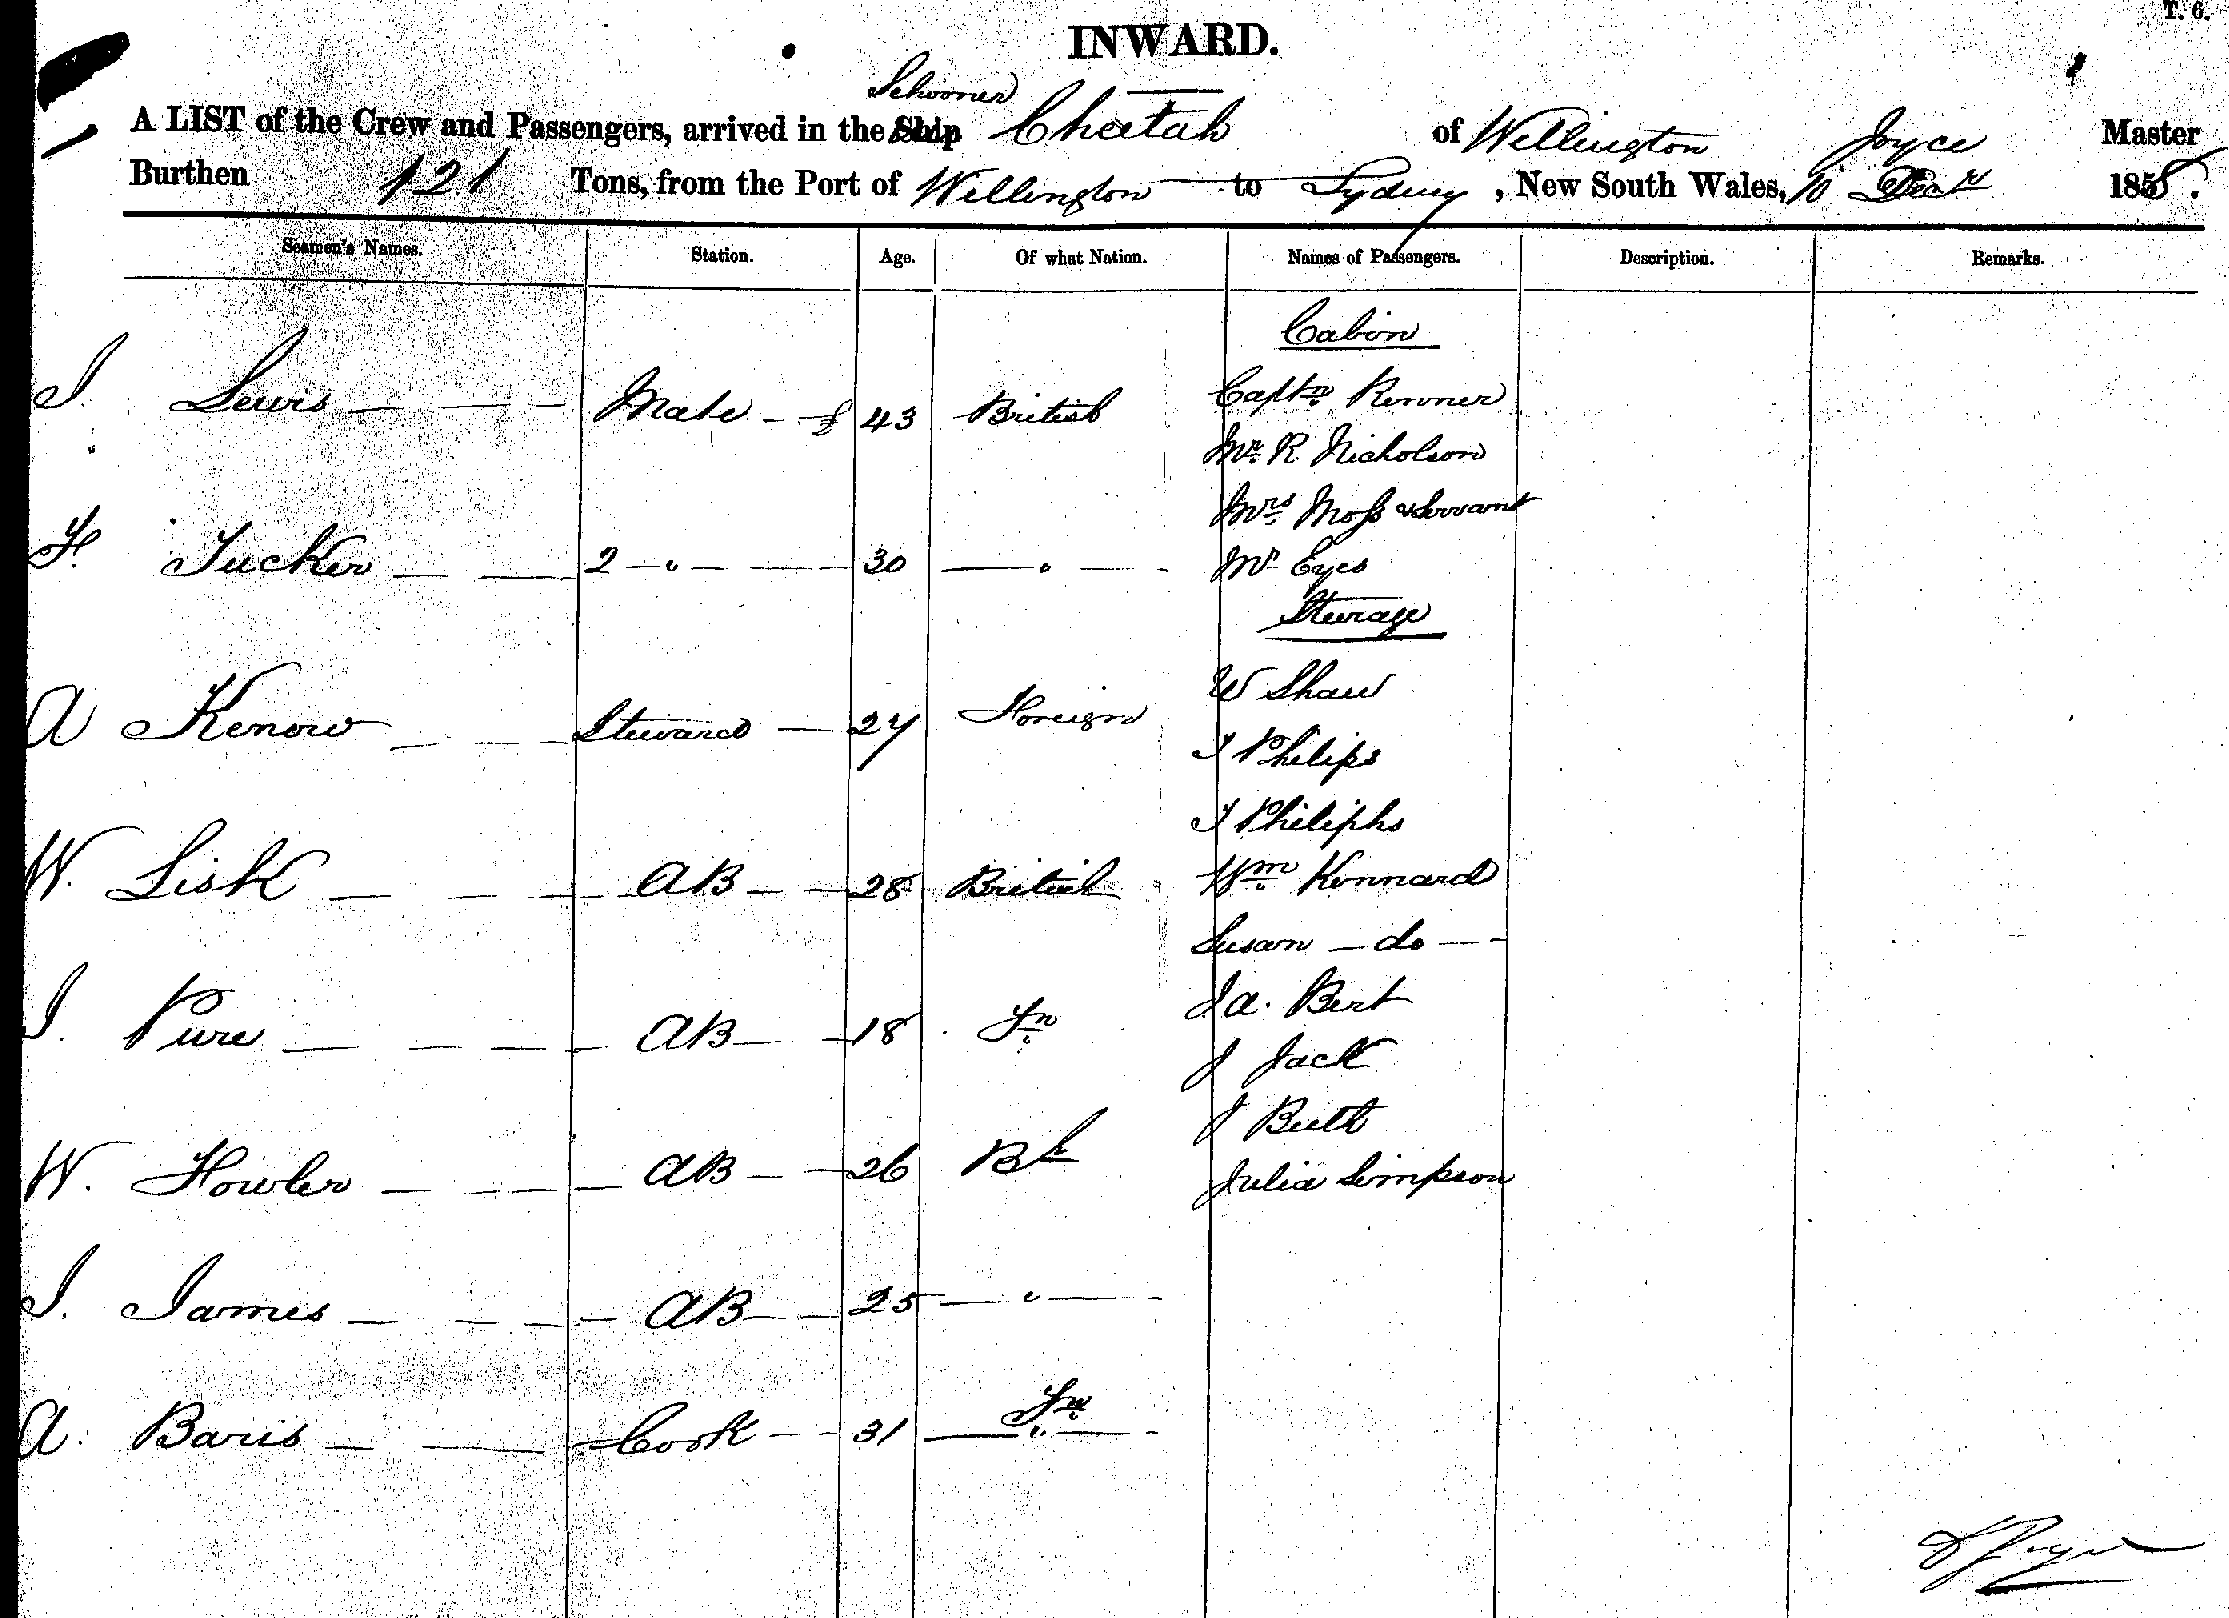 T. 6.
INWARD.
Schooner
A LIST of the Crew and Passengers, arrived in the Ship Cheetah of Wellington Joyce Master
Burthen 121 Tons, from the Port of Wellington to Sydney, New South Wales, 10 Decr 1858.
Seamen's Names. Station. Age. Of what Nation. Names of Passengers. Description. Remarks.
Cabin
J. Lewis Mate 43 British Captn Renner
Mr R Nicholson
Mrs Moss & Servant
F. Tucker 2 " 30 " Mr Eyes
Steerage
A Kenow Steward 27 Foreign W Shaw
J Philips
J Philiphs
W. Lisk AB 28 British Wm Kennard
Susan do
J. Pure AB 18 Fn Ja. Bert
J Jack
J Butt
W. Howler AB 26 Bh Julia Simpson
J. James AB 25 "
A. Baris Cook 31 Fn "